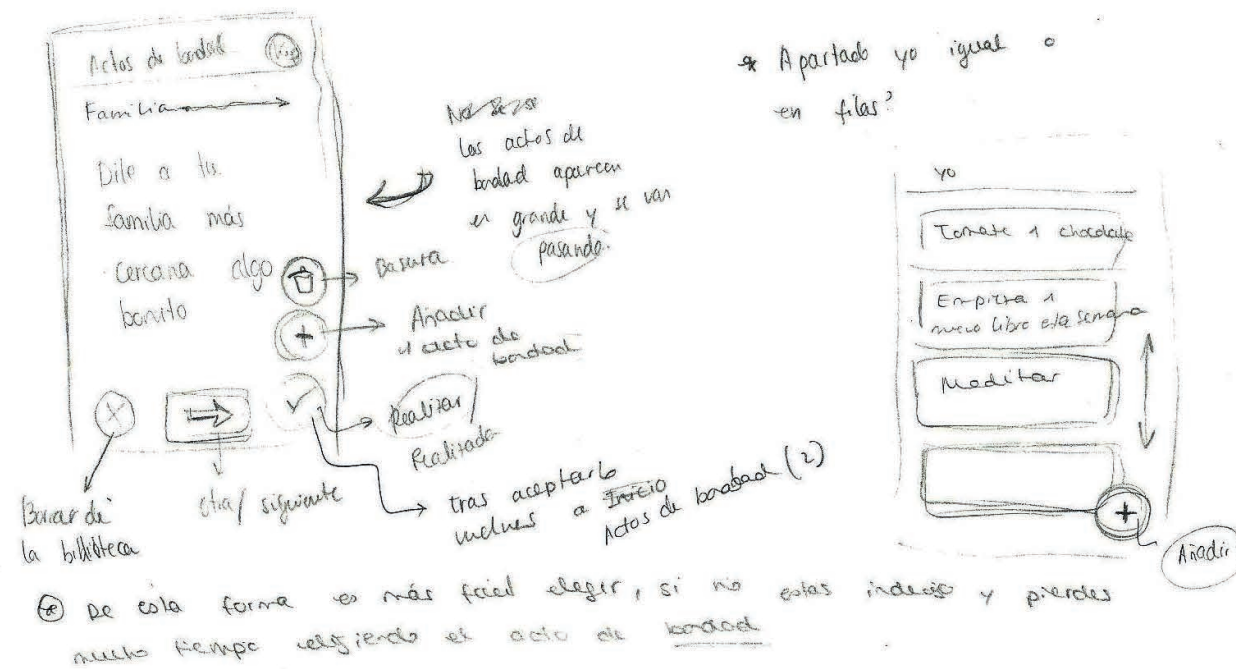 Actos de bondad
Familia
Dile a tu
familia más
cercana algo
bonito
los actos de
bondad aparecen
en grande y se van
pasando.
Basura
Añadir
1 acto de
bondad
Realizar
Realizado
tras aceptarlo
vuelves a Inicio
Actos de bondad (2)
Borrar de
la biblioteca
otra/ siguiente
* Apartado yo igual o
en filas?
yo
Tomate 1 chocolate
Empieza 1
nuevo libro esta semana
Meditar
Añadir
De esta forma es más fácil elegir, si no estas indeciso y pierdes
mucho tiempo eligiendo el acto de bondad